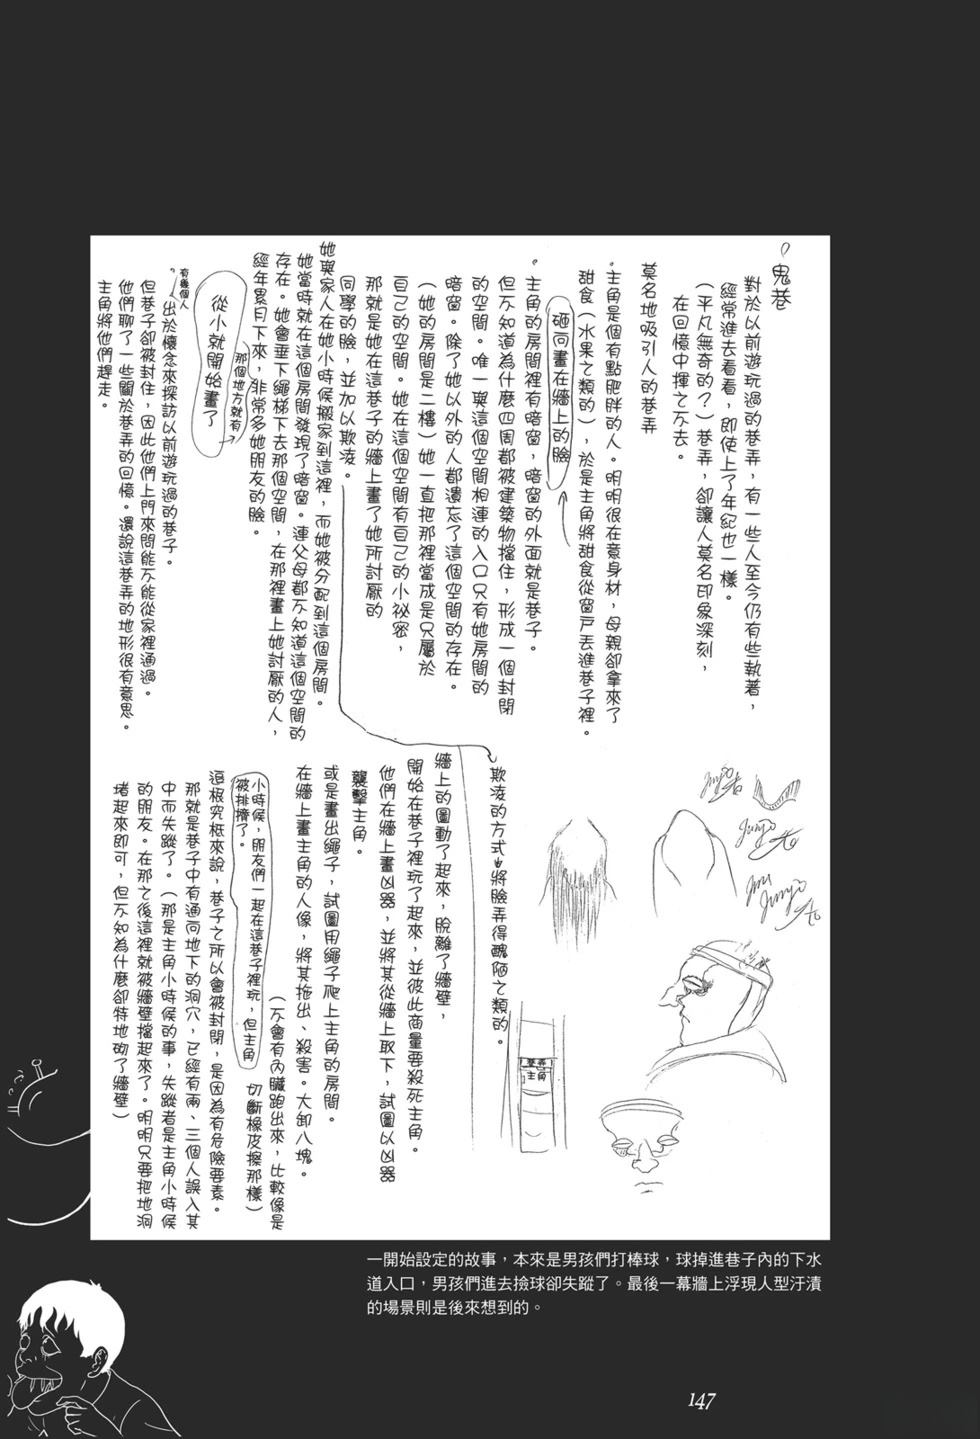 鬼巷
對於以前遊玩過的巷弄，有一些人至今仍有些執著，
經常進去看看，即使上了年紀也一樣。
（平凡無奇的？）巷弄，卻讓人莫名印象深刻，
在回憶中揮之不去。
莫名地吸引人的巷弄
主角是個有點肥胖的人。明明很在意身材，母親卻拿來了
甜食（水果之類的），於是主角將甜食從窗戶丟進巷子裡。
砸向畫在牆上的臉
主角的房間裡有暗窗，暗窗的外面就是巷子。
但不知道為什麼四周都被建築物擋住，形成一個封閉
的空間。唯一與這個空間相連的入口只有她房間的
暗窗。除了她以外的人都遺忘了這個空間的存在。
（她的房間是二樓）她一直把那裡當成是只屬於
自己的空間。她在這個空間有自己的小祕密，
那就是她在這巷子的牆上畫了她所討厭的
同學的臉，並加以欺凌。
她與家人在她小時候搬家到這裡，而她被分配到這個房間。
她當時就在這個房間發現了暗窗。連父母都不知道這個空間的
存在。她會垂下繩梯下去那個空間，在那裡畫上她討厭的人，
經年累月下來，非常多她朋友的臉。
那個地方就有
從小就開始畫了
有幾個人
出於懷念來探訪以前遊玩過的巷子。
但巷子卻被封住，因此他們上門來問能不能從家裡通過。
他們聊了一些關於巷弄的回憶。還說這巷弄的地形很有意思。
主角將他們趕走。
Junji
Junji
Junji
欺凌的方式 將臉弄得醜陋之類的。
巷弄
主角
牆上的圖動了起來，脫離了牆壁，
開始在巷子裡玩了起來，並彼此商量要殺死主角。
他們在牆上畫凶器，並將其從牆上取下，試圖以凶器
襲擊主角。
或是畫出繩子，試圖用繩子爬上主角的房間。
在牆上畫主角的人像，將其拖出、殺害。大卸八塊。
（不會有內臟跑出來，比較像是
切斷橡皮擦那樣）
小時候，朋友們一起在這巷子裡玩，但主角
被排擠了。
追根究柢來說，巷子之所以會被封閉，是因為有危險要素。
那就是巷子中有通向地下的洞穴，已經有兩、三個人誤入其
中而失蹤了。（那是主角小時候的事，失蹤者是主角小時候
的朋友。在那之後這裡就被牆壁擋起來了。明明只要把地洞
堵起來即可，但不知為什麼卻特地砌了牆壁）
一開始設定的故事，本來是男孩們打棒球，球掉進巷子內的下水
道入口，男孩們進去撿球卻失蹤了。最後一幕牆上浮現人型汙漬
的場景則是後來想到的。
147